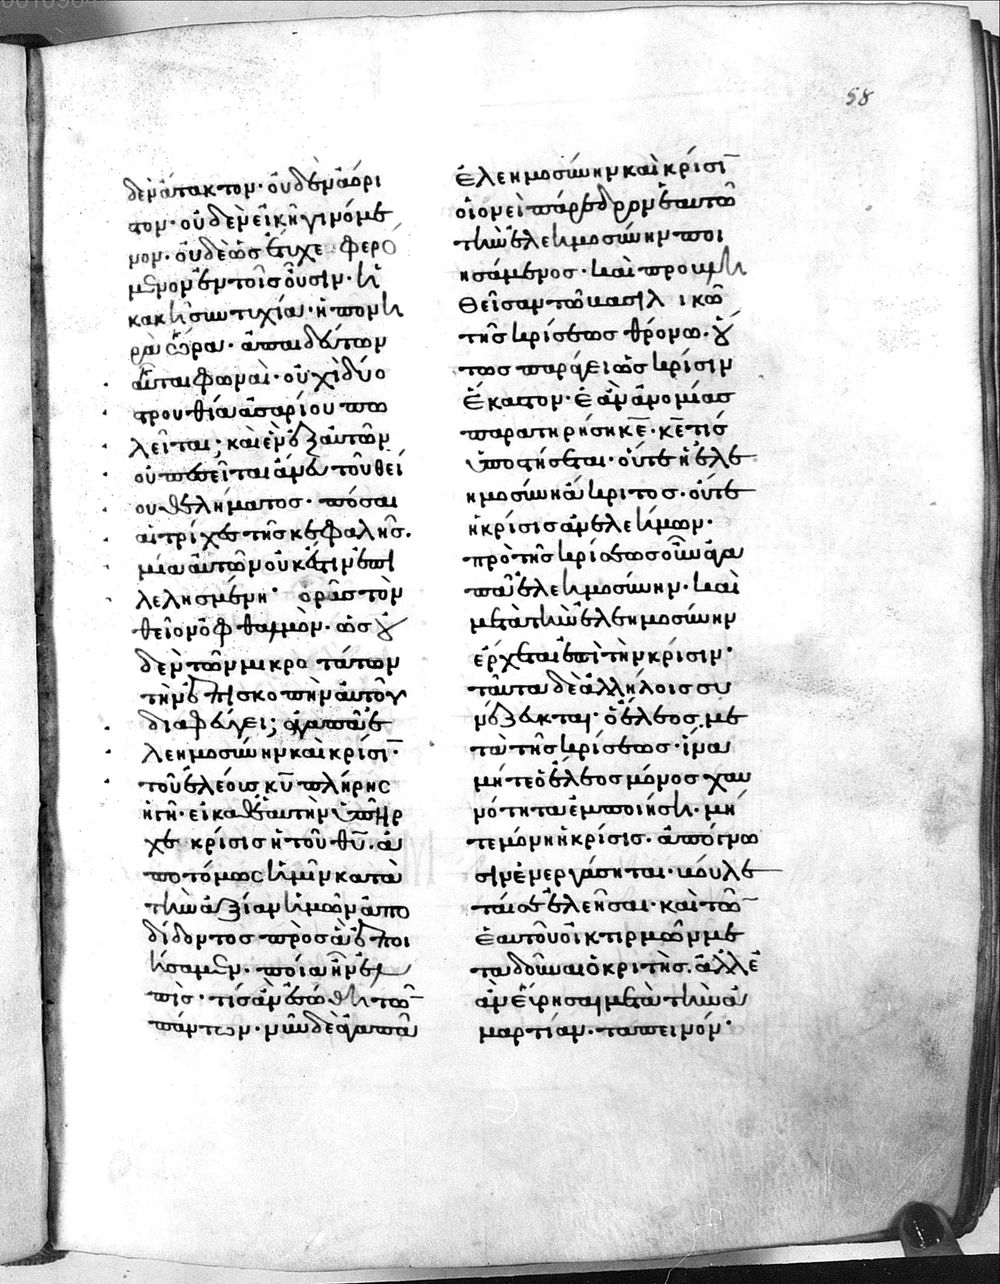 58
δὲν ἄτακτον· οὐδὲν ἀόρι
στον· οὐδὲν εἰκῆ γινόμε
νον· οὐδὲ ὡς ἔτυχε φερό
μενον ἐν τοῖς οὖσιν· ἢ
κακὴ συντυχία· ἢ πονη
ρὰ ὥρα· ἀπαιδεύτων
αὗται φωναὶ· οὐχὶ δύο
στρουθία ἀσσαρίου πω
λεῖται; καὶ ἓν ἐξ αὐτῶν
οὐ πεσεῖται ἄνευ τοῦ θεί
ου θελήματος· πόσαι
αἱ τρίχες τῆς κεφαλῆς.
μία αὐτῶν οὐκ ἔστιν ἐπι
λελησμένη· ὁρᾶς τὸν
θεῖον ὀφθαλμὸν· ὡς οὐ
δὲν τῶν μικροτάτων
τὴν ἐπισκοπὴν αὐτοῦ
διαφεύγει; ἀγαπᾷ ἐ
λεημοσύνην καὶ κρίσιν·
τοῦ ἐλέους κυ πλήρης
ἡ γῆ· εἰ καθ' ἑαυτὴν ὑπῆρ
χε κρίσις ἡ τοῦ θυ· ἀ
ποτόμως ἡμῖν κατὰ
τὴν ἀξίαν ἡμῶν ἀπο
δίδοντος πρὸς ἃ ἐποι
ήσαμεν· ποία ἦν ἐλ
πὶς· τίς ἂν ἐσώθη τῶν
πάντων· νῦν δὲ ἀγαπᾷ
ἐλεημοσύνην καὶ κρίσιν
οἱονεὶ πάρεδρον ἑαυτῶ
τὴν ἐλεημοσύνην ποι
ησάμενος· καὶ προκαθη
θεῖσαν τῶ βασιλικῶ
τῆς κρίσεως θρόνω· οὕ
τως παράγει ὡς κρίσιν
ἕκαστον· ἐὰν ἀνομίας
παρατηρήση κε· κε τίς
ὑποστήσεται· οὔτε ἡ ἐλε
ημοσύνη ἄκριτος· οὔτε
ἡ κρίσις ἀνελεήμων·
πρὸ τῆς κρίσεως οὖν ἀγα
πᾷ ἐλεημοσύνην· καὶ
μετὰ τὴν ἐλεημοσύνην
ἔρχεται ἐπὶ τὴν κρίσιν·
ταῦτα δὲ ἀλλήλοις συ
νέζευκται· ὁ ἔλεος με
τὰ τῆς κρίσεως· ἵνα
μήτε ὁ ἔλεος μόνος χαυ
νότητα ἐμποιήση· μή
τε μόνη ἡ κρίσις· ἀπόγνω
σιν ἐνεργάσηται· βούλε
ταί σε ἐλεῆσαι· καὶ τῶν
ἑαυτοῦ οἰκτιρμῶν με
ταδοῦναι ὁ κριτὴς. ἀλλ' ἐ
ὰν εὕρη σαι μετὰ τὴν ἁ
μαρτίαν· ταπεινόν·